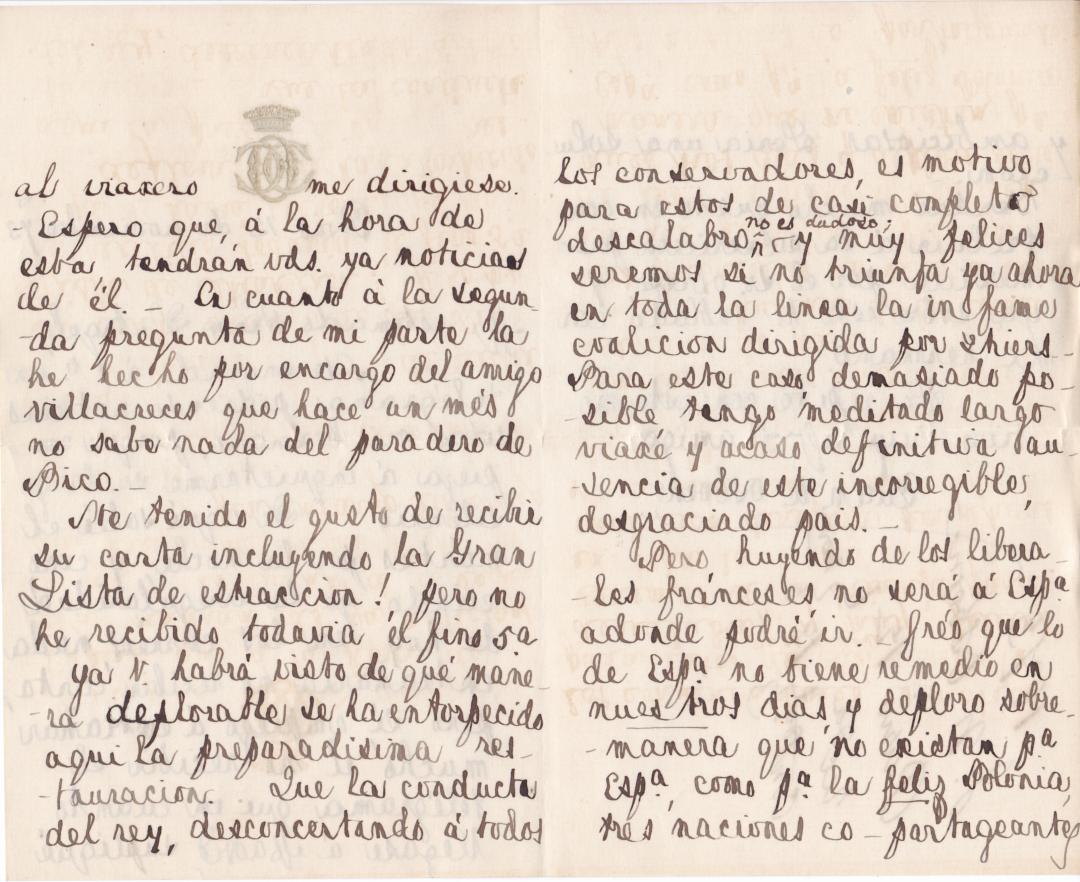 al viaxero me dirigiese.
- Espero que, á la hora de
esta, tendrán vds. ya noticias
de él - En cuanto á la segun-
-da pregunta de mi parte la
he hecho por encargo del amigo
Villacreces que hace un més
no sabe nada del paradero de
Pico. -
He tenido el gusto de recibir
su carta incluyendo la Gran
Lista de estraccion! pero no
he recibido todavia él fino 5a
ya V. habrá visto de qué mane-
-ra deplorable se ha entorpecido
aqui la preparadisima res-
-tauracion. Que la conducta
del rey, desconcertando á todos
los conservadores, es motivo
para estos de casi completo
no es dudoso;
descalabro, y muy felices
seremos si no triunfa ya ahora
en toda la linea la infame
coalicion dirigida por Thiers-
Para este caso, demasiado po-
-sible tengo meditado largo
viaxé y acaso definitiva au-
-sencia de este incorregible,
desgraciado pais. -
Pero huyendo de los libera-
-les fránceses no será á Espª
adonde podré ir. - Créo que lo
de Espª no tiene remedio en
nuestros dias y deploro sobre-
-manera que no existan pª
Espª, como pª la feliz Polonia,
trés naciones co-partageantes